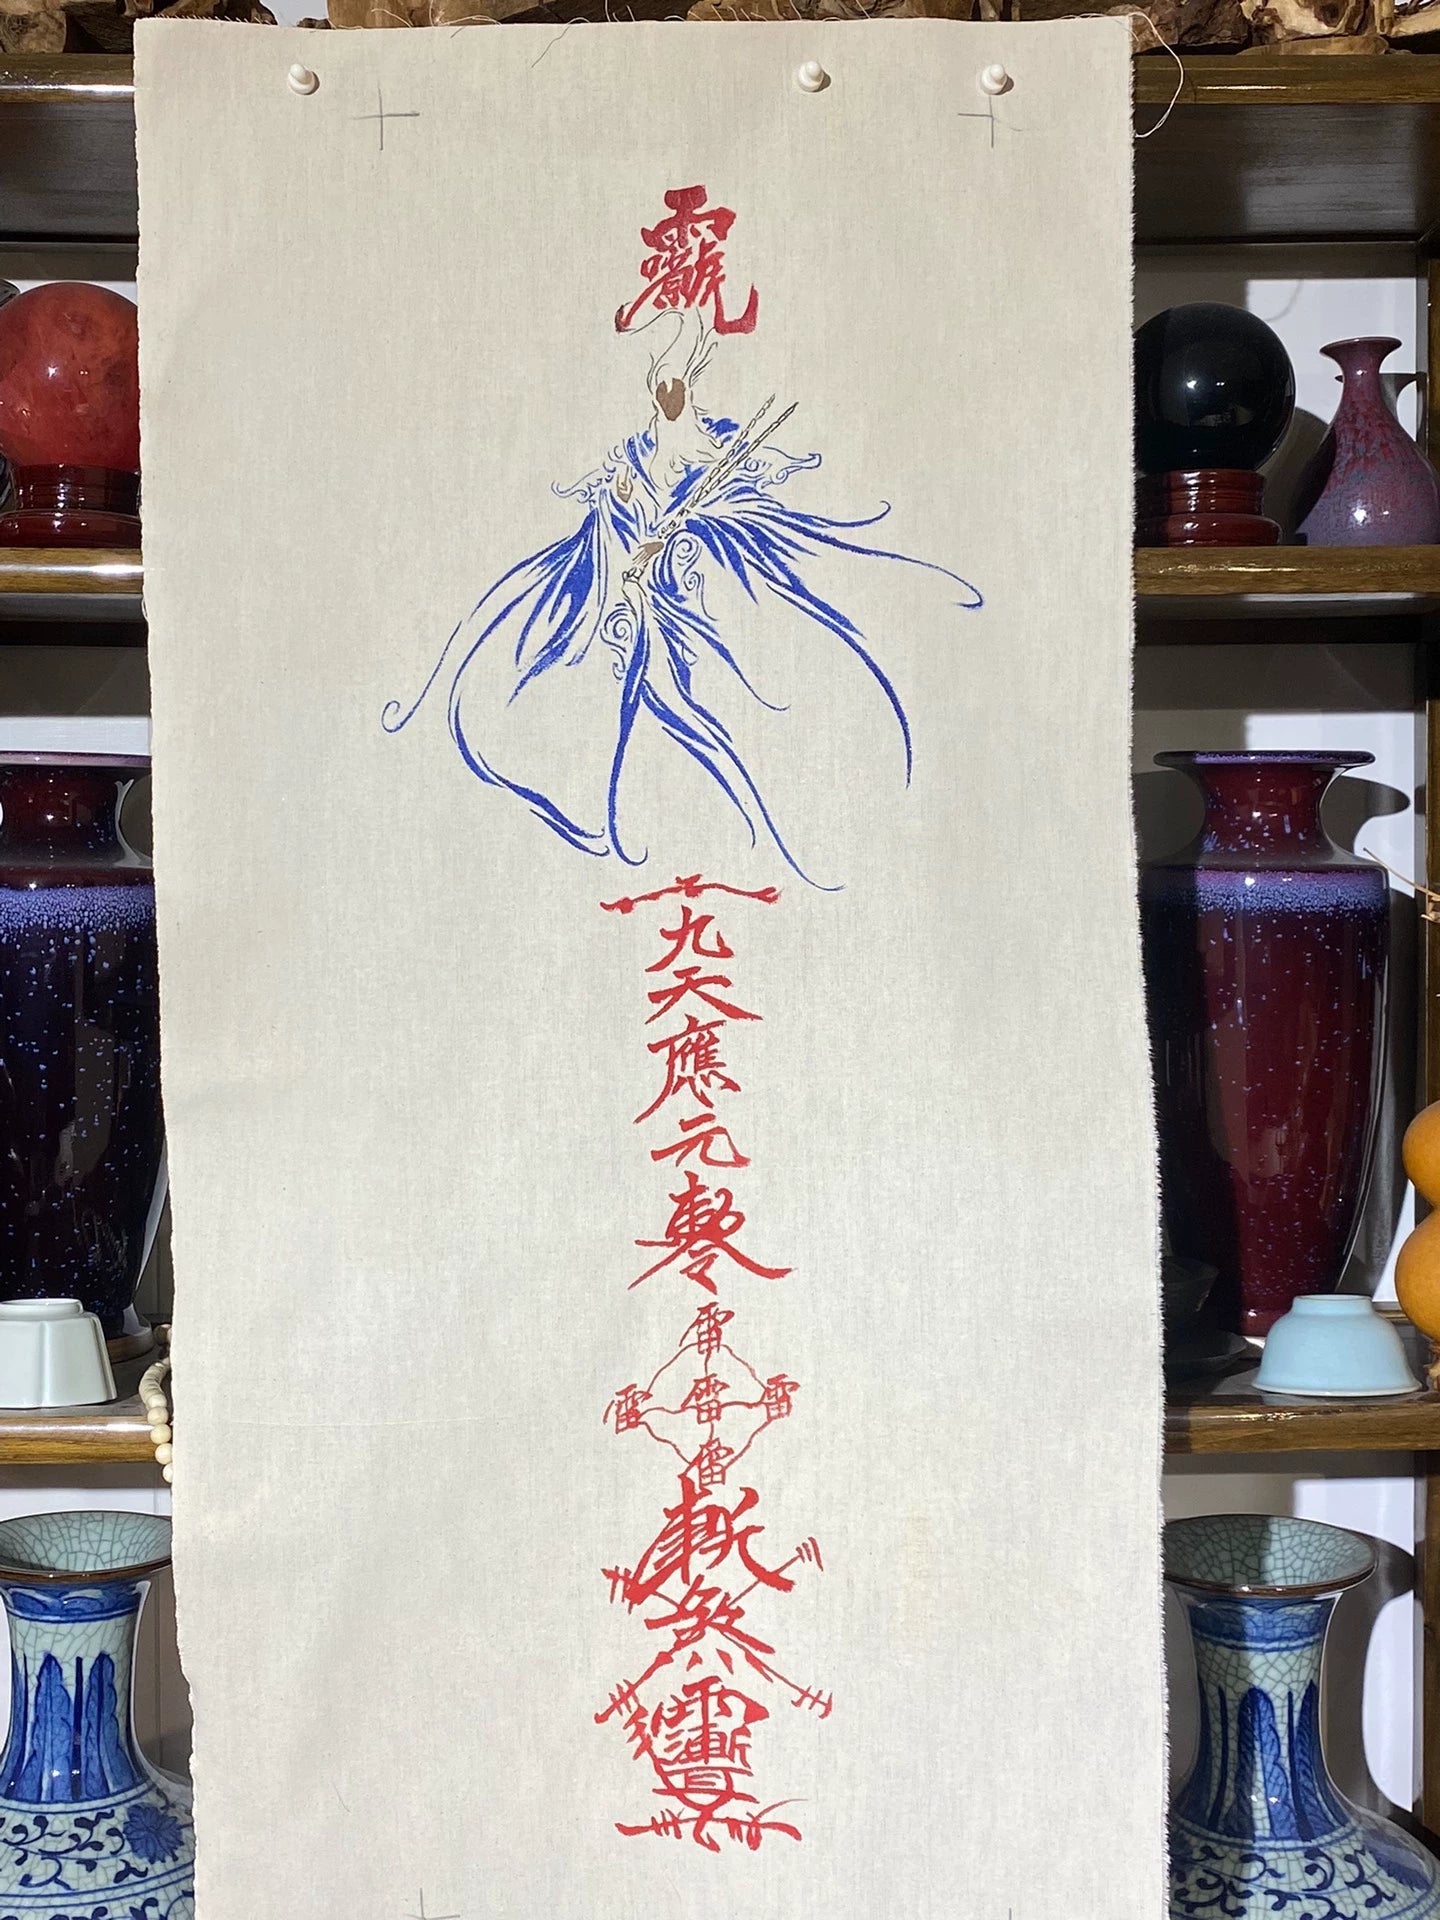 九
天
應
元
雷
雷 雷 雷
雷
斬
煞